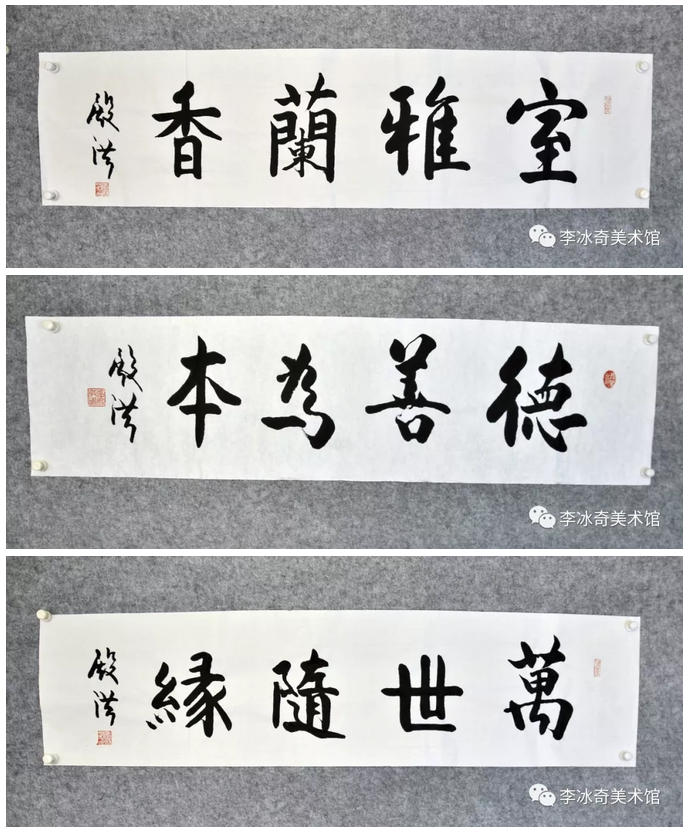 室雅蘭香
殿洪
李冰奇美术馆
德善為本
殿洪
李冰奇美术馆
萬世隨緣
殿洪
李冰奇美术馆